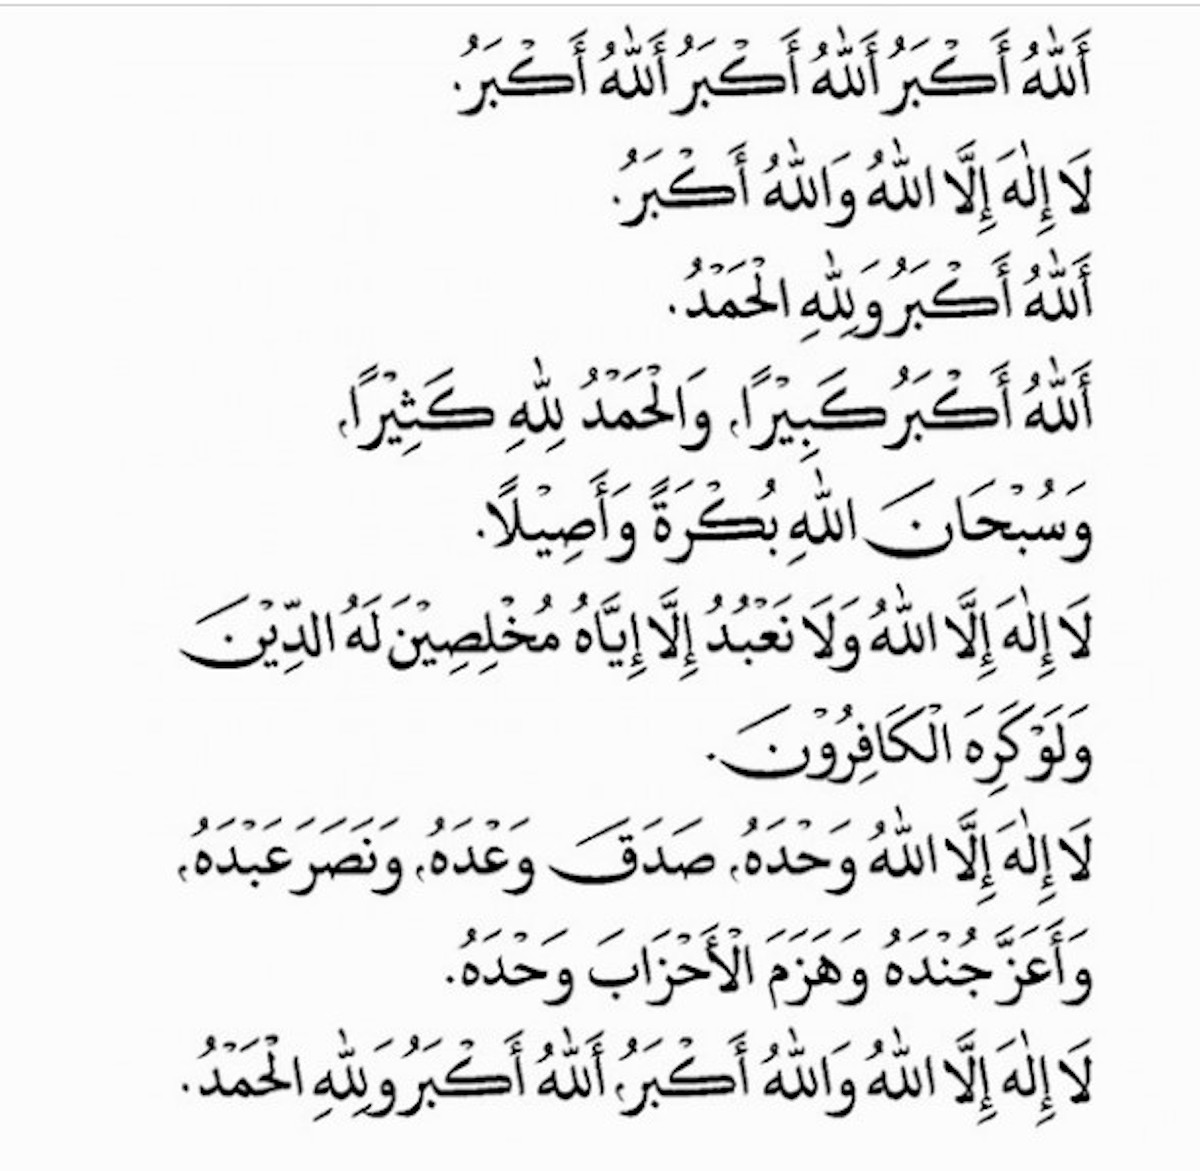 أَللّٰهُ أَكْبَرُ أَللّٰهُ أَكْبَرُ أَللّٰهُ أَكْبَرُ.
لَا إِلٰهَ إِلَّا اللّٰهُ وَاللّٰهُ أَكْبَرُ.
أَللّٰهُ أَكْبَرُ وَلِلّٰهِ الْحَمْدُ.
أَللّٰهُ أَكْبَرُ كَبِيْرًا، وَالْحَمْدُ لِلّٰهِ كَثِيْرًا،
وَسُبْحَانَ اللّٰهِ بُكْرَةً وَأَصِيْلًا.
لَا إِلٰهَ إِلَّا اللّٰهُ وَلَا نَعْبُدُ إِلَّا إِيَّاهُ مُخْلِصِيْنَ لَهُ الدِّيْنَ
وَلَوْ كَرِهَ الْكَافِرُوْنَ.
لَا إِلٰهَ إِلَّا اللّٰهُ وَحْدَهُ، صَدَقَ وَعْدَهُ، وَنَصَرَ عَبْدَهُ،
وَأَعَزَّ جُنْدَهُ وَهَزَمَ الْأَحْزَابَ وَحْدَهُ.
لَا إِلٰهَ إِلَّا اللّٰهُ وَاللّٰهُ أَكْبَرُ، أَللّٰهُ أَكْبَرُ وَلِلّٰهِ الْحَمْدُ.